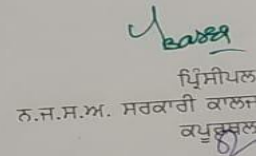 ਪ੍ਰਿੰਸੀਪਲ
ਨ.ਜ.ਸ.ਅ. ਸਰਕਾਰੀ ਕਾਲਜ
ਕਪੂਰਥਲ